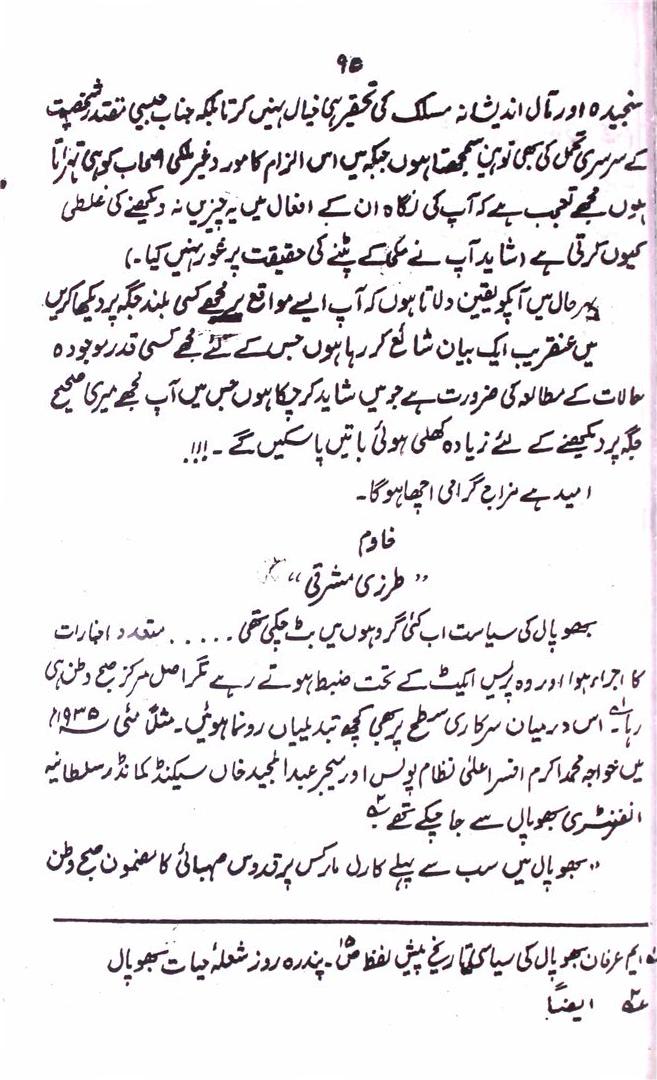 ۹۵
سنجیدہ اور مآل اندیشانہ مسلک کی تحقیر ہی خیال نہیں کرتا بلکہ جناب جیسی مقتدر شخصیت
کے سرسری تحمل کی بھی توہین سمجھتا ہوں جبکہ میں اس الزام کا مورد غیر ملکی اصحاب کو ہی ٹہراتا
ہوں مجھے تعجب ہے کہ آپ کی نگاہ ان کے افعال میں یہ چیزیں نہ دیکھنے کی غلطی
کیوں کرتی ہے (شاید آپ نے مکی کے پٹنے کی حقیقت پر غور نہیں کیا۔)
بہرحال میں آپکو یقین دلاتا ہوں کہ آپ ایسے مواقع پر مجھے کسی بلند جگہ پر دیکھا کریں
میں عنقریب ایک بیان شائع کر رہا ہوں جس کے لئے مجھے کسی قدر موجودہ
حالات کے مطالعہ کی ضرورت ہے جو میں شاید کر چکا ہوں جس میں آپ مجھے میری صحیح
جگہ پر دیکھنے کے لئے زیادہ کھلی ہوئی باتیں پا سکیں گے۔!!!
امید ہے مزاج گرامی اچھا ہوگا۔
خادم
"طرزی مشرقی"
بھوپال کی سیاست اب کئی گروہوں میں بٹ چکی تھی ۔ . . . . . متعدد اخبارات
کا اجراء ہوا اور وہ پریس ایکٹ کے تحت ضبط ہوتے رہے مگر اصل مرکز صبح وطن ہی
رہا۔۱؎ اس درمیان سرکاری سطح پر بھی کچھ تبدیلیاں رونما ہوئیں۔ مثلاً مئی ۱۹۳۵ء
میں خواجہ محمد اکرم افسر اعلیٰ نظام پولس اور میجر عبدالمجید خاں سیکنڈ کمانڈر سلطانیہ
انفنٹری بھوپال سے جا چکے تھے ۲؎
"بھوپال میں سب سے پہلے کارل مارکس پر قدوس صہبائی کا مضمون صبح وطن
۱؎ ایم عرفان بھوپال کی سیاسی تاریخ پیش لفظ ص ۱۵۔ پندرہ روز شعلۂ حیات بھوپال
۲؎ ایضاً